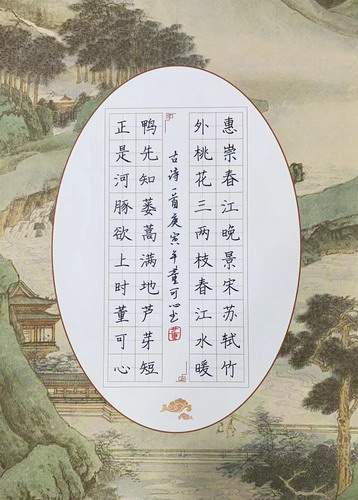 惠崇春江晚景宋苏轼竹
外桃花三两枝春江水暖
鸭先知蒌蒿满地芦芽短
正是河豚欲上时董可心
古诗一首庚寅年董可心书
董